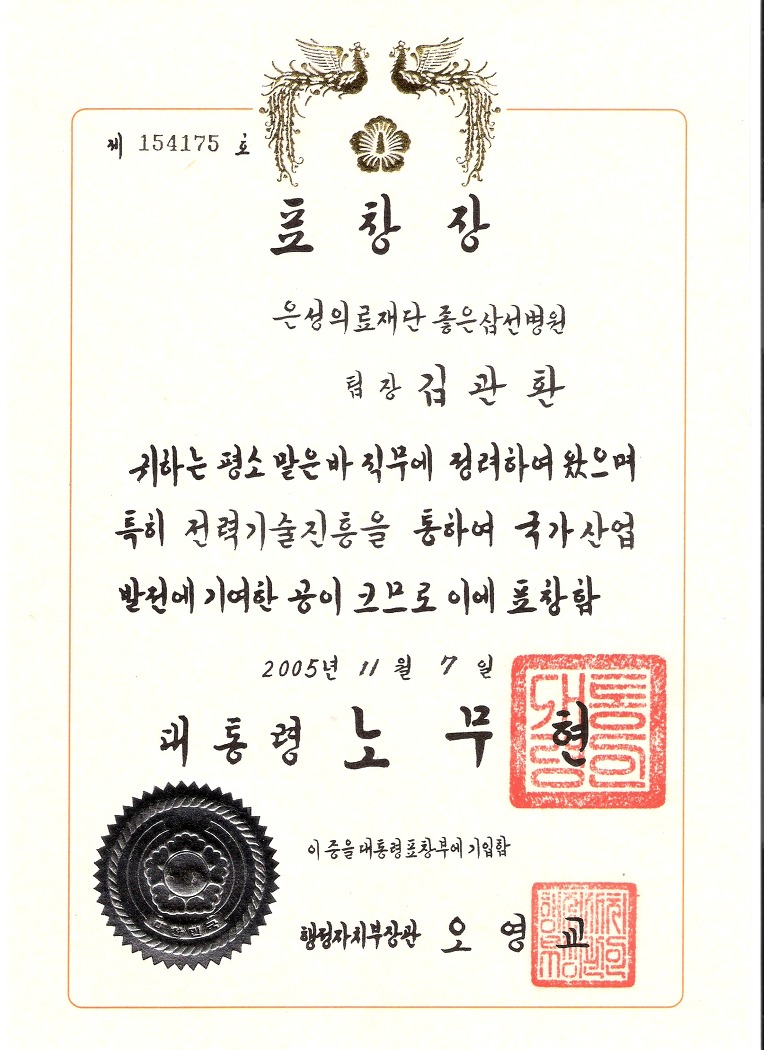 제 154175 호
표 창 장
은성의료재단 좋은삼선병원
팀 장 김 관 환
귀하는 평소 맡은바 직무에 정려하여 왔으며
특히 전력기술진흥을 통하여 국가산업
발전에 기여한 공이 크므로 이에 표창함
2005년 11 월 7 일
대 통 령 노 무 현
이 증을 대통령표창부에 기입함
행정자치부장관 오 영 교